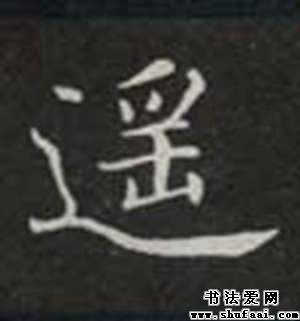 遥
书法爱网
www.shufaai.com